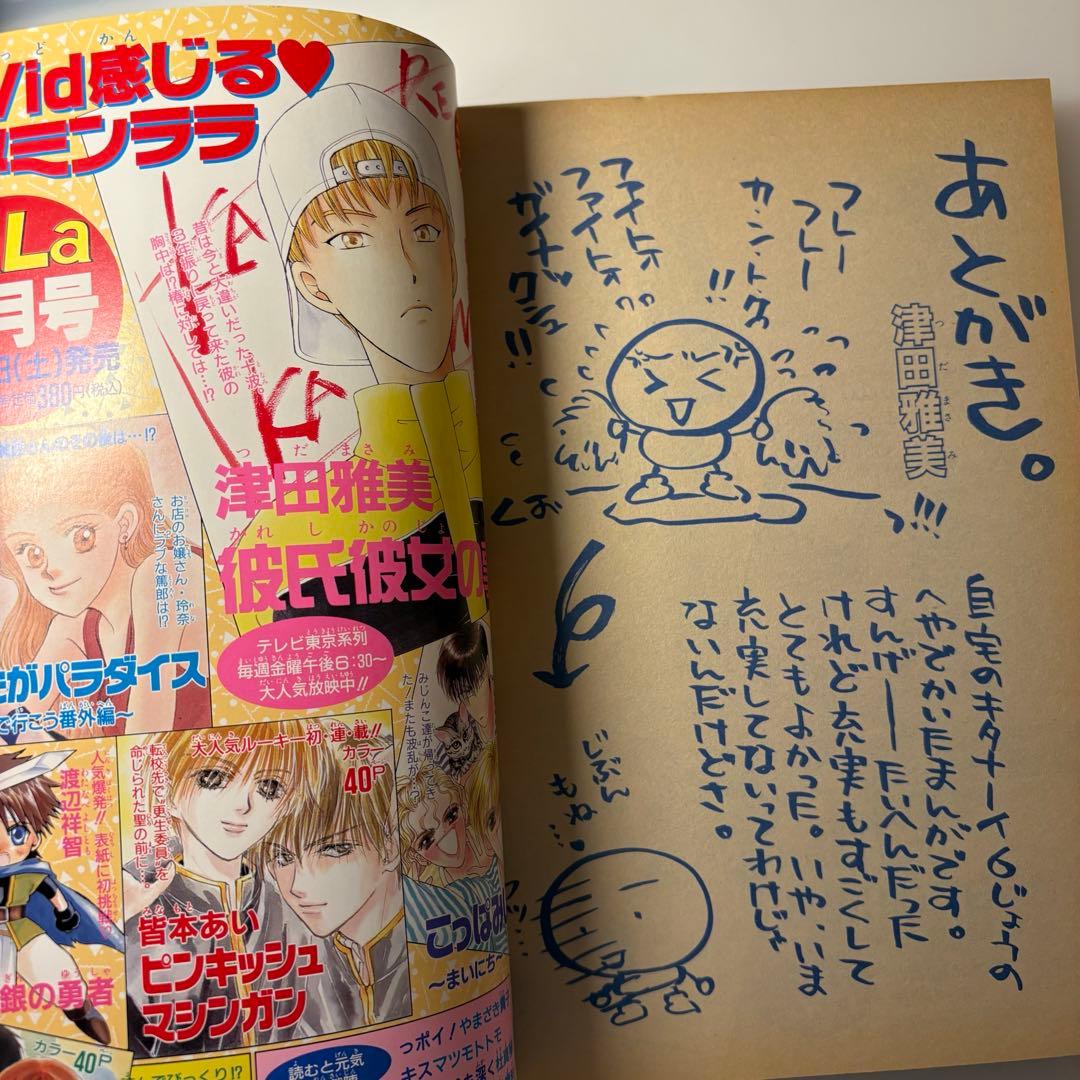 っどかん
Vid感じる♥
タミンララ
La
月号
日(土)発売
380円(税込)
RE
昔は今と大違いだった十波。
3年振りに戻って来た彼の
胸中は!?椿に対しては…!?
つだまさみ
津田雅美
かれしかのじょ
彼氏彼女の
テレビ東京系列
毎週金曜午後6:30〜
大人気放映中!!
のその後は…!?
お店のお嬢さん・玲奈
さんにラブな篤郎は!?
がパラダイス
で行こう番外編〜
みじんこ達が帰ってき
た!またも波乱が…!?
大人気ルーキー初・連・載!!
カラー
40P
転校先で"更生委員"を
命じられた聖の前に…。
みなもと
皆本あい
ピンキッシュ
マシンガン
人気爆発!!表紙に初挑戦
わたなべよしとも
渡辺祥智
ゆうしゃ
銀の勇者
こっぱみ
〜まいにち〜
カラー40P
んでびっくり!?
読むと元気
っポイ!やまざき貴子
キスマツモトトモ
あとがき。
つだまさみ
津田雅美
フレー
フレー
カントク
!!
ファイトォ
ファイトォ
ガイナックス!!
くぉ
っ!!!
自宅のキタナーイ6じょうの
へやでかいたまんがです。
すんげ――たいへんだった
けれど充実もすごくして
とてもよかった。いや、いま
充実してないってわけじゃ
ないんだけどさ。
じぶん
もね…